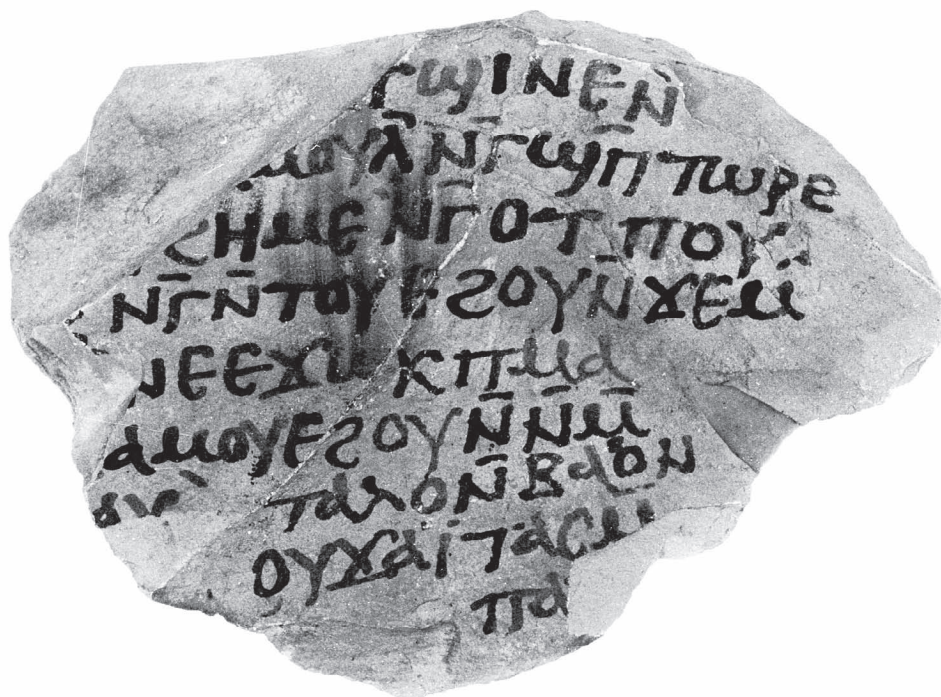 ⲅϣⲓⲛⲉⲛ
ⲙⲟⲩⲗⲛ̄ⲅ̄ϣⲡ̄ⲧⲱⲣⲉ
ϩⲏⲙⲉⲛⲅ̄ⲟⲧⲡⲟⲩ
ⲛ̄ⲅ̄ⲛ̄ⲧⲟⲩⲉϩⲟⲩⲛ̄ϫⲉⲙ
ⲛⲉⲉϫⲱⲕⲡⲙⲁ
ⲁⲙⲟⲩⲉϩⲟⲩⲛ̄ⲛ̄ⲙ̄
ⲧⲁⲗⲟⲛ̄ⲃⲁⲟⲛ
ⲟⲩϫⲁⲓⲧⲁⲥⲙ
ⲡⲁ